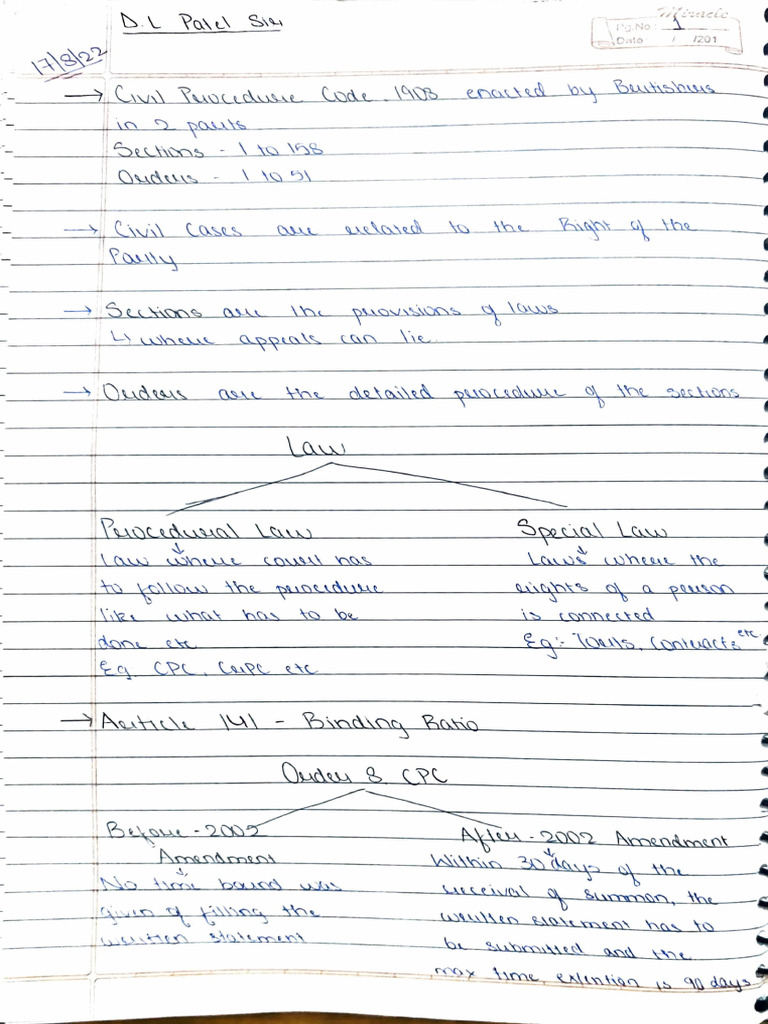 D.L Patel Sir
Miracle
Pg.No : 1
Date / /201
17/8/22
→ Civil Procedure Code, 1908 enacted by Britishers
in 2 parts
Sections - 1 to 158
Orders - 1 to 51
→ Civil Cases are related to the Right of the
Party
→ Sections are the provisions of laws
↳ where appeals can lie.
→ Orders are the detailed procedure of the sections
Law
Procedural Law
Law where court has
to follow the procedure
like what has to be
done etc
Eg CPC, CrPC etc
Special Law
Laws where the
rights of a person
is connected
Eg:- Torts, Contracts etc
→ Article 141 - Binding Ratio
Order 8 CPC
Before - 2002
Amendment
No time bound was
given of filling the
written statement
After - 2002 Amendment
Within 30 days of the
receival of summon, the
written statement has to
be submitted and the
max time extention is 90 days